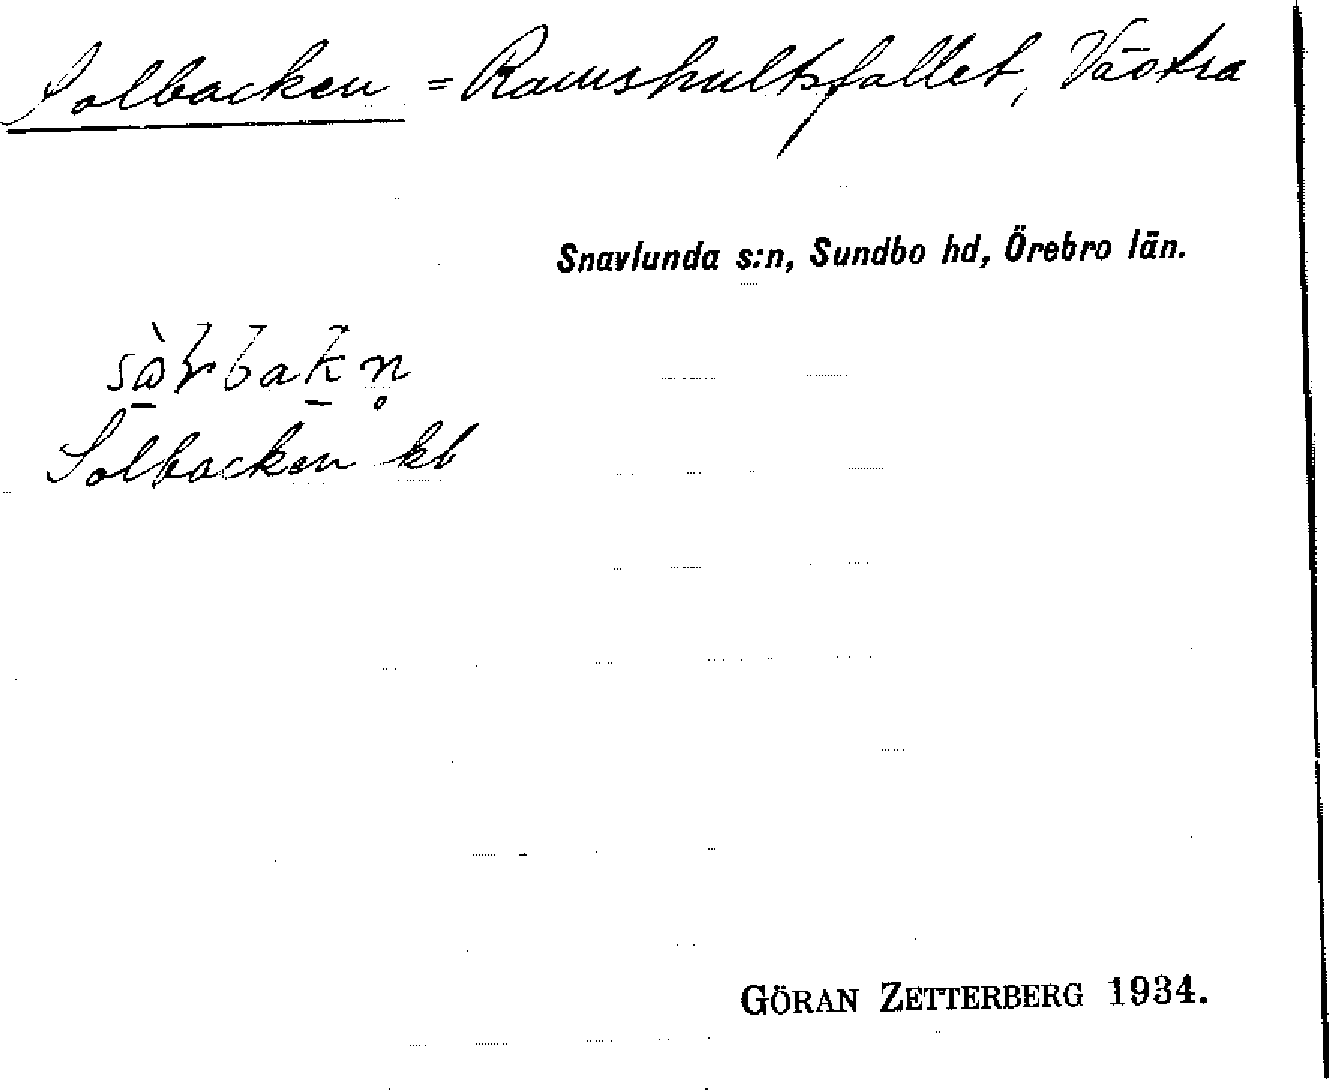 Solbacken = Ramshultsfallet, Västra
Snavlunda s:n, Sundbo hd, Örebro län.
Solbacken kb
GÖRAN ZETTERBERG 1934.